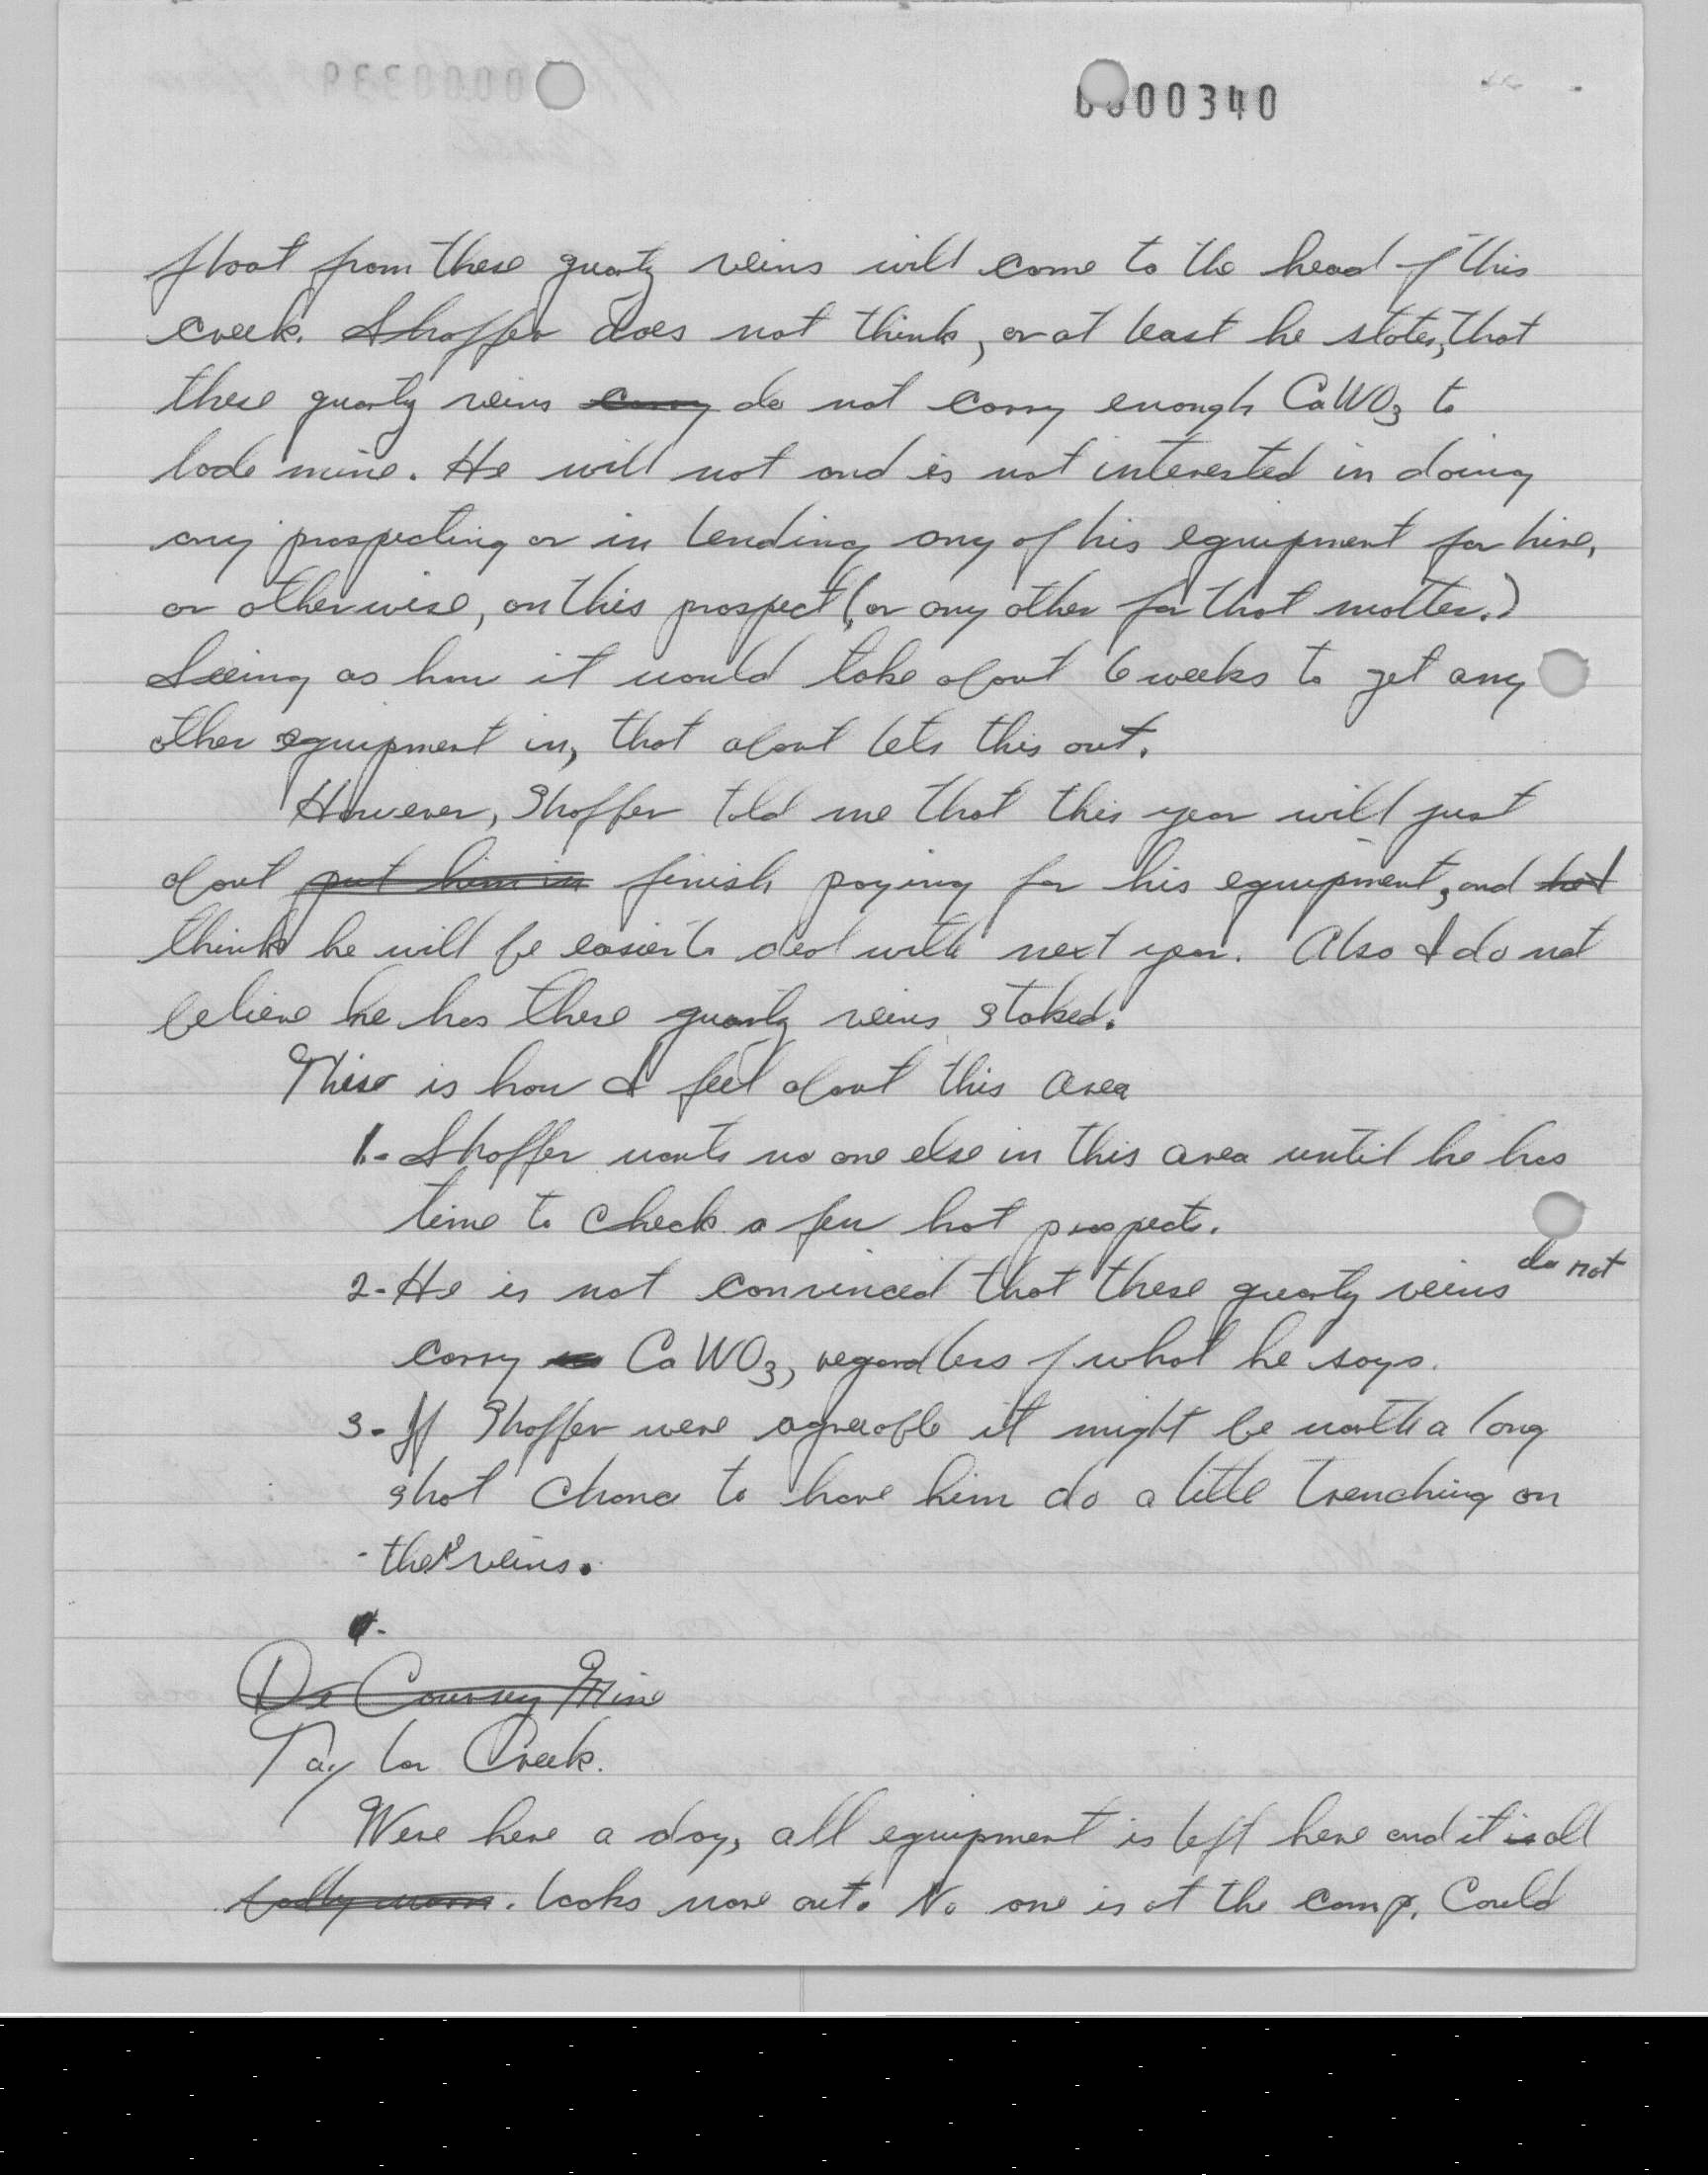 0000340
float from these quartz veins will come to the head of this
creek. Shaffer does not think, or at least he states, that
these quartz veins carry do not carry enough CaWO3 to
lode mine. He will not and is not interested in doing
any prospecting or in lending any of his equipment for hire,
or otherwise, on this prospect (or any other for that matter.)
Seeing as how it would take about 6 weeks to get any
other equipment in, that about lets this out.
However, Shaffer told me that this year will just
about put him in finish paying for his equipment, and
think he will be easier to deal with next year. Also I do not
believe he has these quartz veins staked.
This is how I feel about this area
1.- Shaffer wants no one else in this area until he has
time to check a few hot prospects.
2- He is not convinced that these quartz veins do not
carry CaWO3, regardless of what he says.
3- If Shaffer were agreeable it might be worth a long
shot chance to have him do a little trenching on
the veins.
De Coursey Mine
Taylor Creek.
Were here a day, all equipment is left here and it is all
badly worn. looks wore out. No one is at the camp. Could